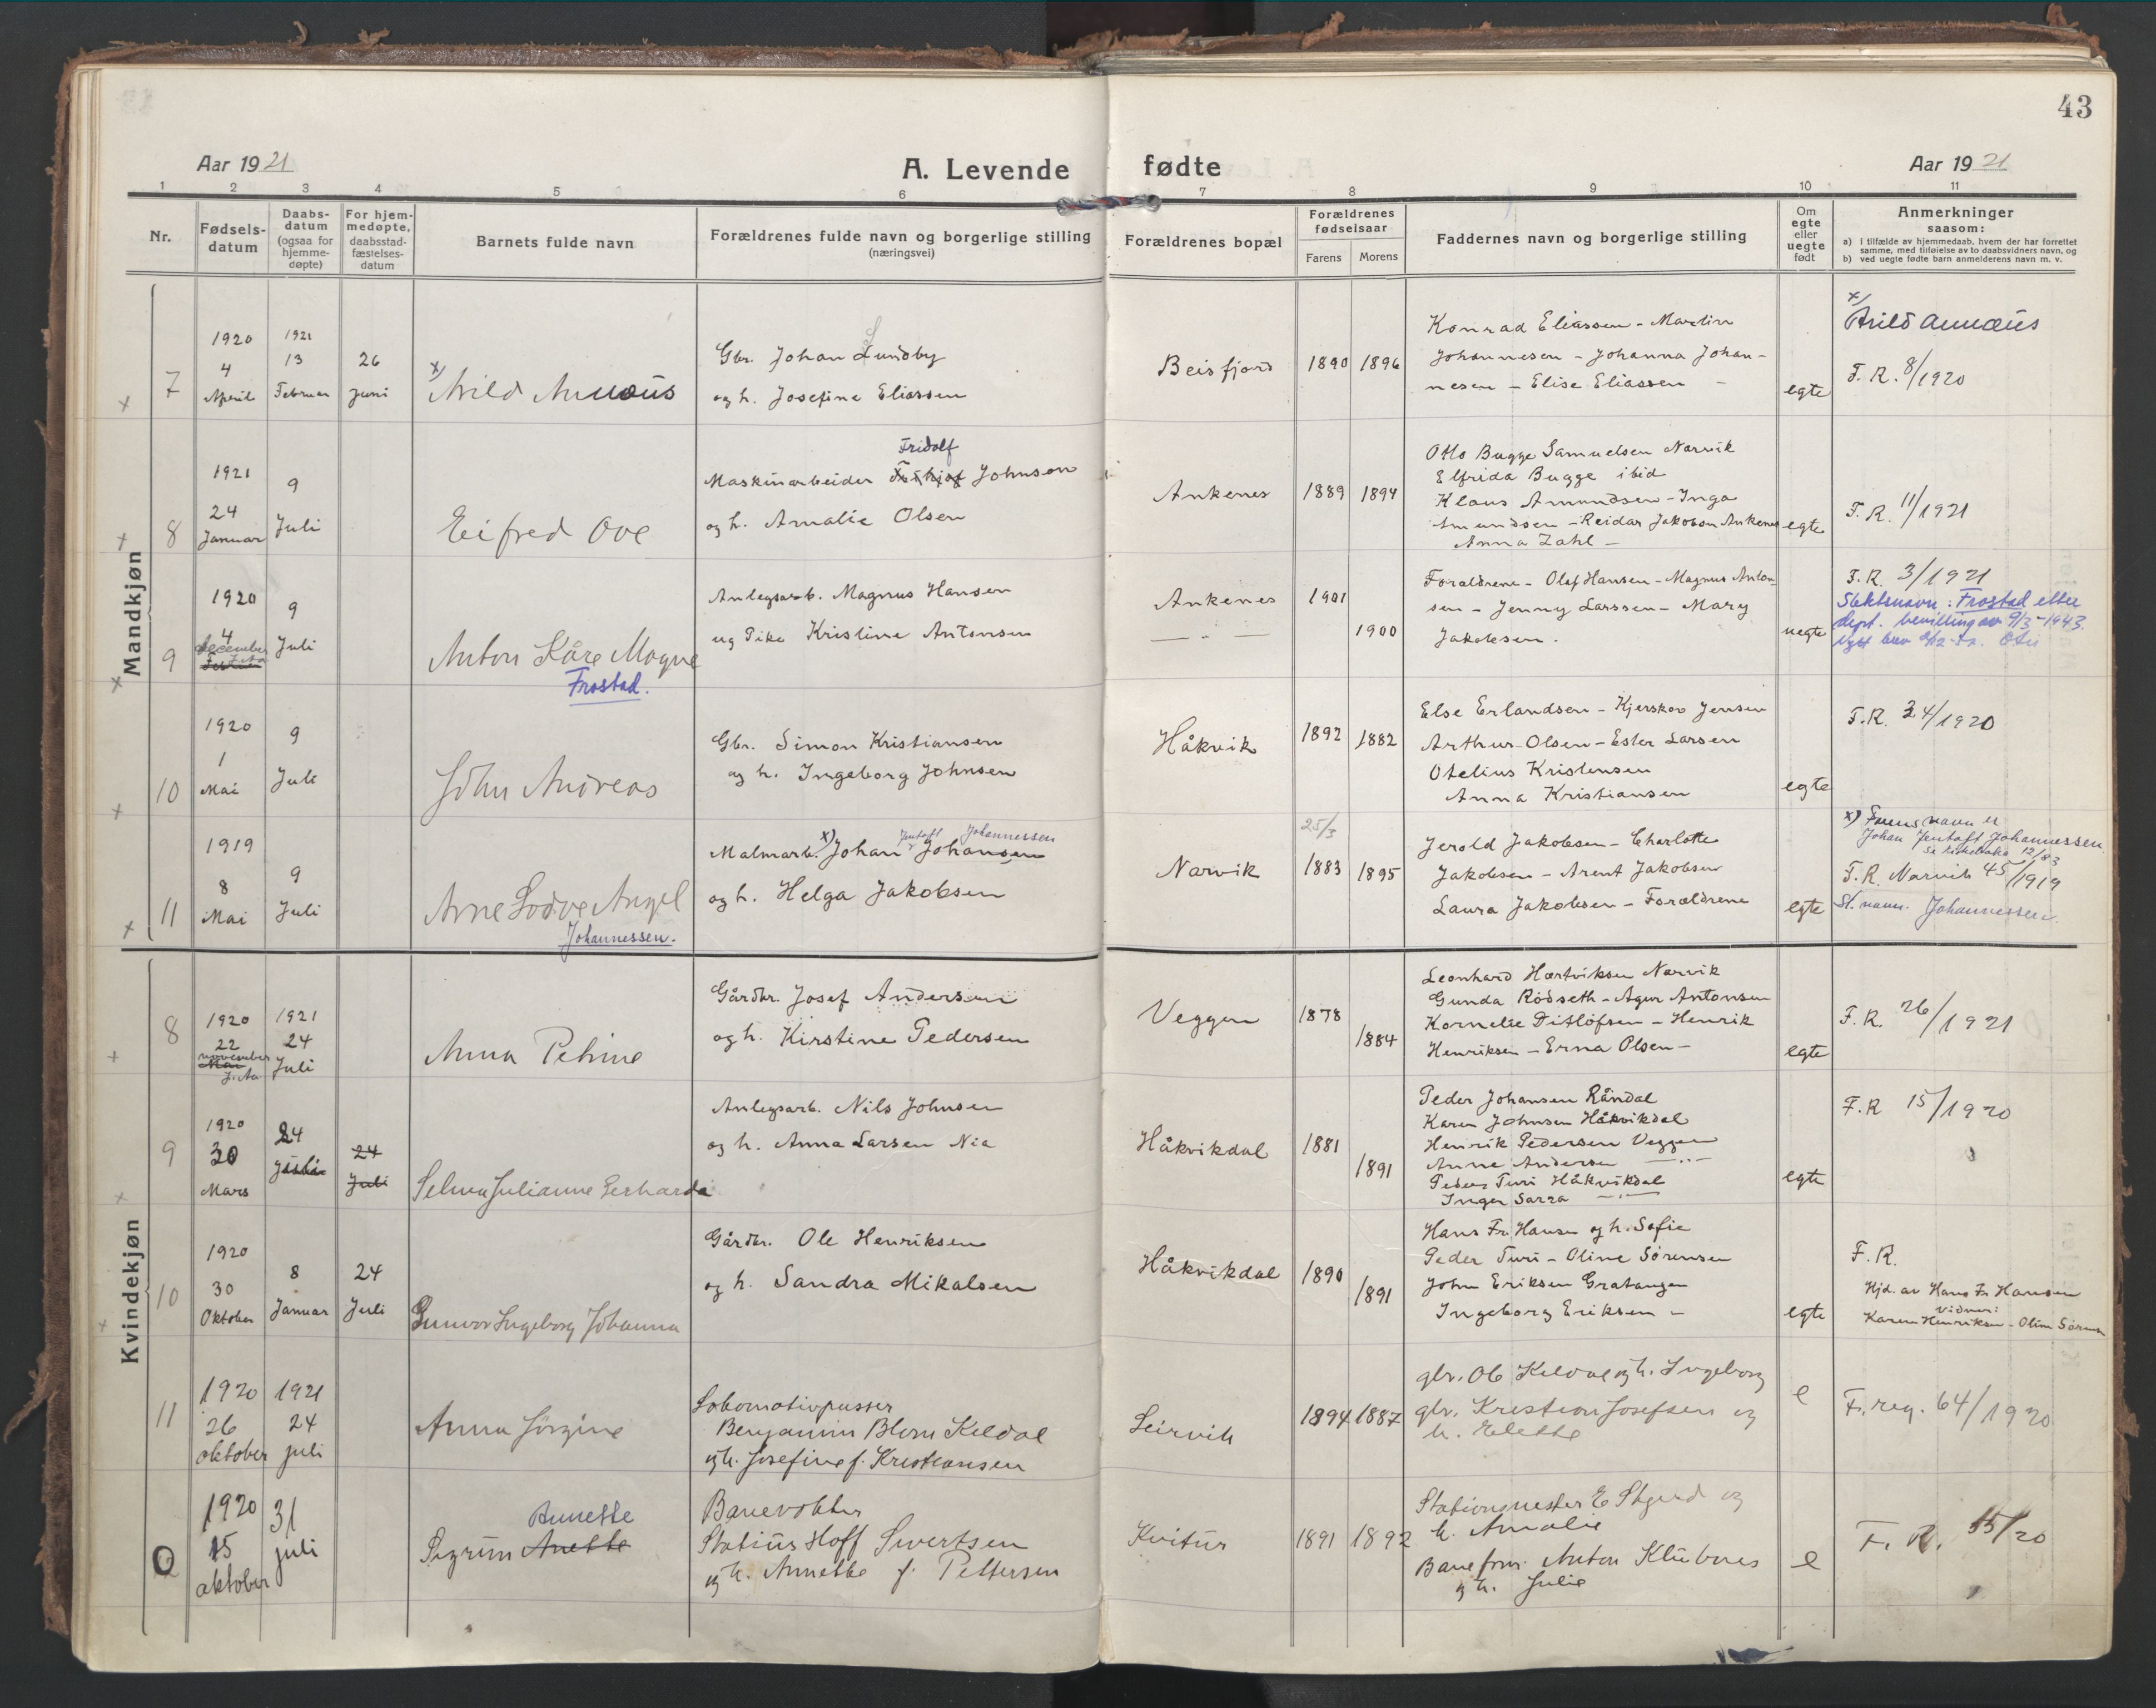 43
Aar 1921
A. Levende fødte
Aar 1921
1 2 3 4 5 6 7 8 9 10 11
Nr.
Fødselsdatum
Daabsdatum (ogsaa for hjemmedøpte)
For hjemmedøpte, daabsstadfæstelsesdatum
Barnets fulde navn
Forældrenes fulde navn og borgerlige stilling (næringsvei)
Forældrenes bopæl
Forældrenes fødselsaar
Farens Morens
Faddernes navn og borgerlige stilling
Om egte eller uegte født
Anmerkninger saasom:
a) i tilfælde av hjemmedaab, hvem der har forrettet samme, med tilføielse av to daabsvidners navn, og
b) ved uegte fødte barn anmelderens navn m. v.
Mandkjøn
7
1920 4 April
1921 13 Februar
26 Juni
x) Arild Annæus
Gbr. Johan Lundby
og h. Josefine Eliassen
Beisfjord
1890 1896
Konrad Eliassen - Martin
Johannesen - Johanna Johan-
nesen - Elise Eliassen -
egte
x) Arild Annæus
F. R. 8/1920
8
1921 24 Januar
9 Juli
Eifred Ove
Fridolf
Maskinarbeider Johnson
og h. Amalie Olsen
Ankenes
1889 1894
Otto Bugge Samuelsen Narvik
Elfrida Bugge ibid
Klaus Amundsen - Inga
Amundsen - Reidar Jakobsen Ankenes
Anna Zahl -
egte
F. R. 11/1921
9
1920 4 december
9 Juli
Anton Kåre Magne
Frostad.
Anlegsarb. Magnus Hansen
ug Pike Kristine Antonsen
Ankenes
— " —
1901
1900
Forældrene - Olaf Hansen - Magnus Anton-
sen - Jenny Larssen - Mary
Jakobsen.
uegte
F. R. 3/1921
Slektsnavn: Frostad etter
dept. bevilling av 9/3-1943.
10
1920 1 Mai
9 Juli
John Andreas
Gbr. Simon Kristiansen
og h. Ingeborg Johnsen
Håkvik
1892 1882
Else Erlandsen - Kjerskov Jensen
Arthur Olsen - Ester Larsen
Otelius Kristensen
Anna Kristiansen
egte
F. R. 24/1920
11
1919 8 Mai
9 Juli
Arne Lodve Angel
Johannessen.
Jentoft Johannessen
Malmarb. x) Johan Johansen
og h. Helga Jakobsen
Narvik
25/3
1883 1895
Jerold Jakobsen - Charlotte
Jakobsen - Arent Jakobsen
Laura Jakobsen - Forældrene
egte
x) Farens navn er
Johan Jentoft Johannessen.
12/83
F. R. Narvik 45/1919
Sl. navn. Johannessen.
Kvindekjøn
8
1920 22 november
1921 24 Juli
Anna Petrine
Gårdbr. Josef Andersen
og h. Kirstine Pedersen
Veggen
1878
1884
Leonhard Hartviksen Narvik
Gunda Rödseth - Agur Antonsen
Kornelie Ditlofsen - Henrik
Henriksen - Erna Olsen -
egte
F. R. 26/1921
9
1920 30 Mars
24 Juli
24 Juli
Selma Julianne Gerharda
Anlegsarb. Nils Johnsen
og h. Anna Larsen Nia
Håkvikdal
1881
1891
Peder Johansen Råndal
Karen Johnsen Håkvikdal
Henrik Pedersen Veggen
Anne Andersen — " —
Peder Turi Håkvikdal
Inger Sarra — " —
egte
F. R 15/1920
10
1920 30 Oktober
8 Januar
24 Juli
Gunvor Ingeborg Johanna
Gårdbr. Ole Henriksen
og h. Sandra Mikalsen
Håkvikdal
1890
1891
Hans Fr. Hansen og h. Sofie
Peder Turi - Oline Sørensen
John Eriksen Gratangen
Ingeborg Eriksen -
egte
F. R.
Hjd. av Hans Fr. Hansen
Vidner:
Karen Henriksen - Oline Sørensen
11
1920 26 oktober
1921 24 juli
Anna Jörgine
Lokomotivpusser
Benjamin Blom Kildal
og h. Josefine f. Kristiansen
Leirvik
1894 1887
gbr. Ole Kildal og h. Ingeborg
gbr. Kristian Josefsen og
h. Elette
e
F. reg. 64/1920
1920 15 oktober
31 juli
Annette
Sigrun Anette
Banevokter
Statius Hoff Sivertsen
og h. Annette f. Pettersen
Kvitur
1891 1892
Stationsmester E Stgerd og
h. Amalie
Baneform. Anton Klubnes
og h. Julie
e
F. R. 55/20